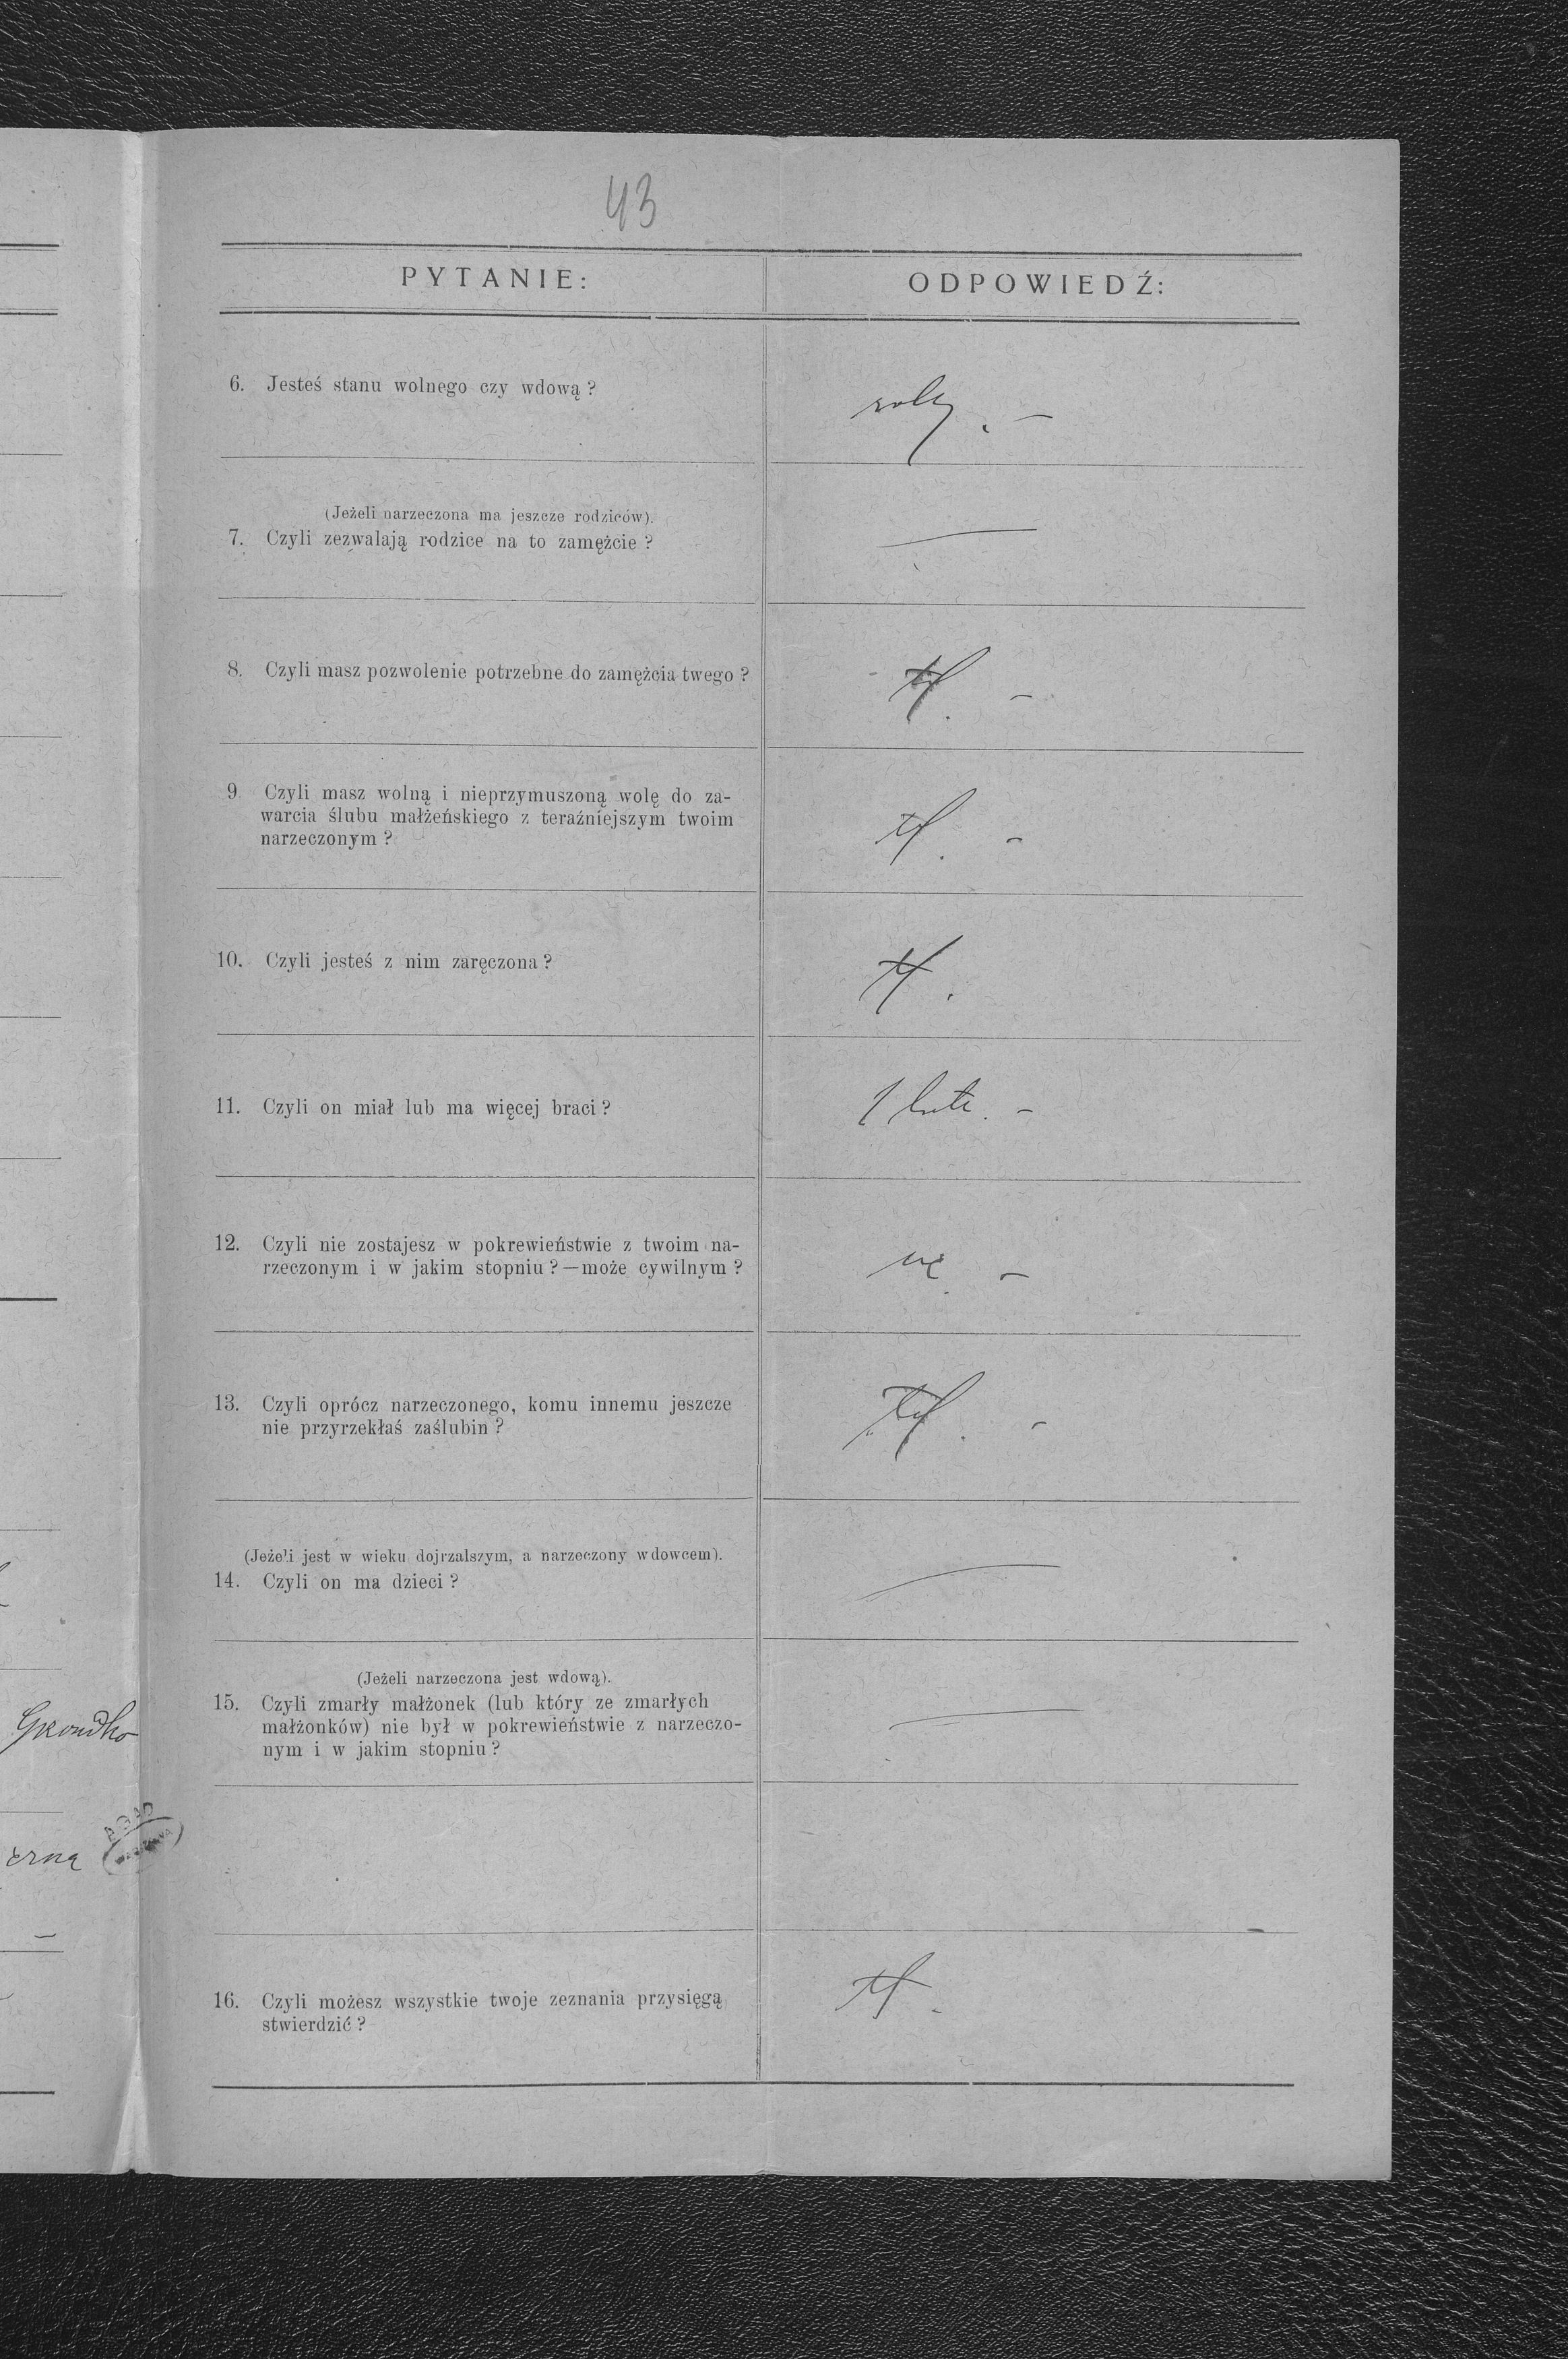 43
PYTANIE:
ODPOWIEDŹ:
6. Jesteś stanu wolnego czy wdową?
(Jeżeli narzeczona ma jeszcze rodziców).
7. Czyli zezwalają rodzice na to zamężcie?
8. Czyli masz pozwolenie potrzebne do zamężcia twego?
9 Czyli masz wolną i nieprzymuszoną wolę do za-
warcia ślubu małżeńskiego z teraźniejszym twoim
narzeczonym?
10. Czyli jesteś z nim zaręczona?
11. Czyli on miał lub ma więcej braci?
1
12. Czyli nie zostajesz w pokrewieństwie z twoim na-
rzeczonym i w jakim stopniu?—może cywilnym?
13. Czyli oprócz narzeczonego, komu innemu jeszcze
nie przyrzekłaś zaślubin?
(Jeżeli jest w wieku dojrzalszym, a narzeczony wdowcem).
14. Czyli on ma dzieci?
(Jeżeli narzeczona jest wdową).
15. Czyli zmarły małżonek (lub który ze zmarłych
małżonków) nie był w pokrewieństwie z narzeczo-
nym i w jakim stopniu?
AGAD
16. Czyli możesz wszystkie twoje zeznania przysięgą
stwierdzić?